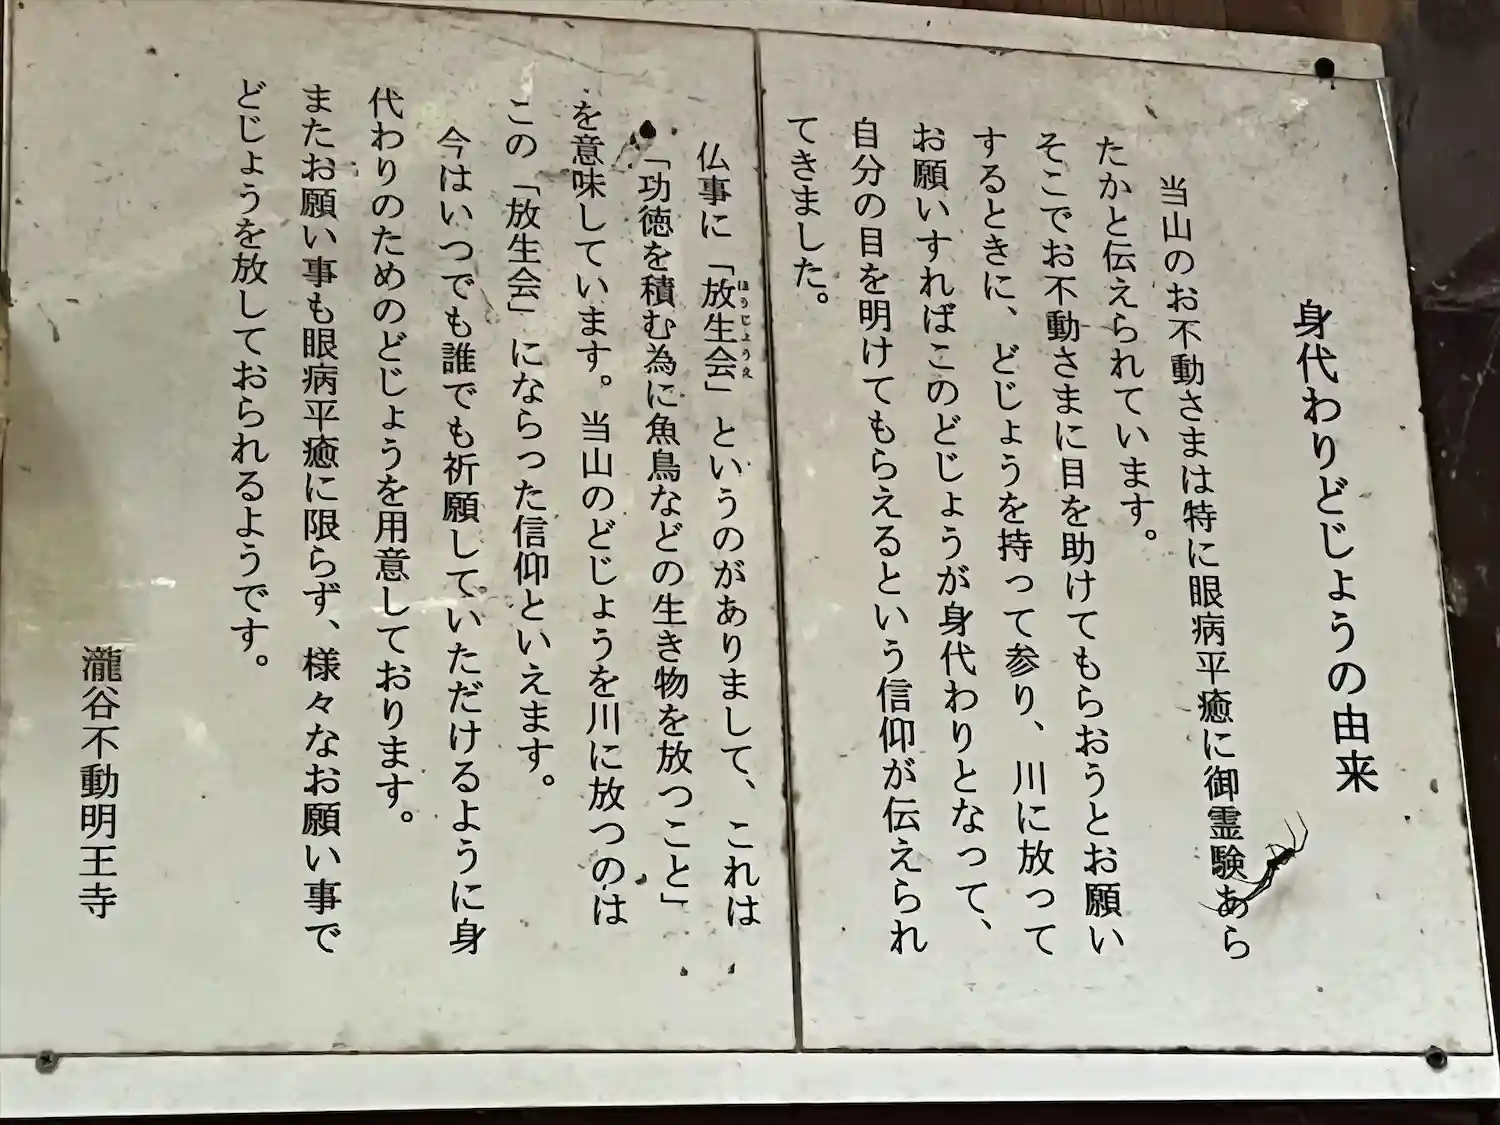 身代わりどじょうの由来
当山のお不動さまは特に眼病平癒に御霊験あら
たかと伝えられています。
そこでお不動さまに目を助けてもらおうとお願い
するときに、どじょうを持って参り、川に放って
お願いすればこのどじょうが身代わりとなって、
自分の目を明けてもらえるという信仰が伝えられ
てきました。
仏事に「放生会」というのがありまして、これは
ほうじょうえ
「功徳を積む為に魚鳥などの生き物を放つこと」
を意味しています。当山のどじょうを川に放つのは
この「放生会」にならった信仰といえます。
今はいつでも誰でも祈願していただけるように身
代わりのためのどじょうを用意しております。
またお願い事も眼病平癒に限らず、様々なお願い事で
どじょうを放しておられるようです。
瀧谷不動明王寺